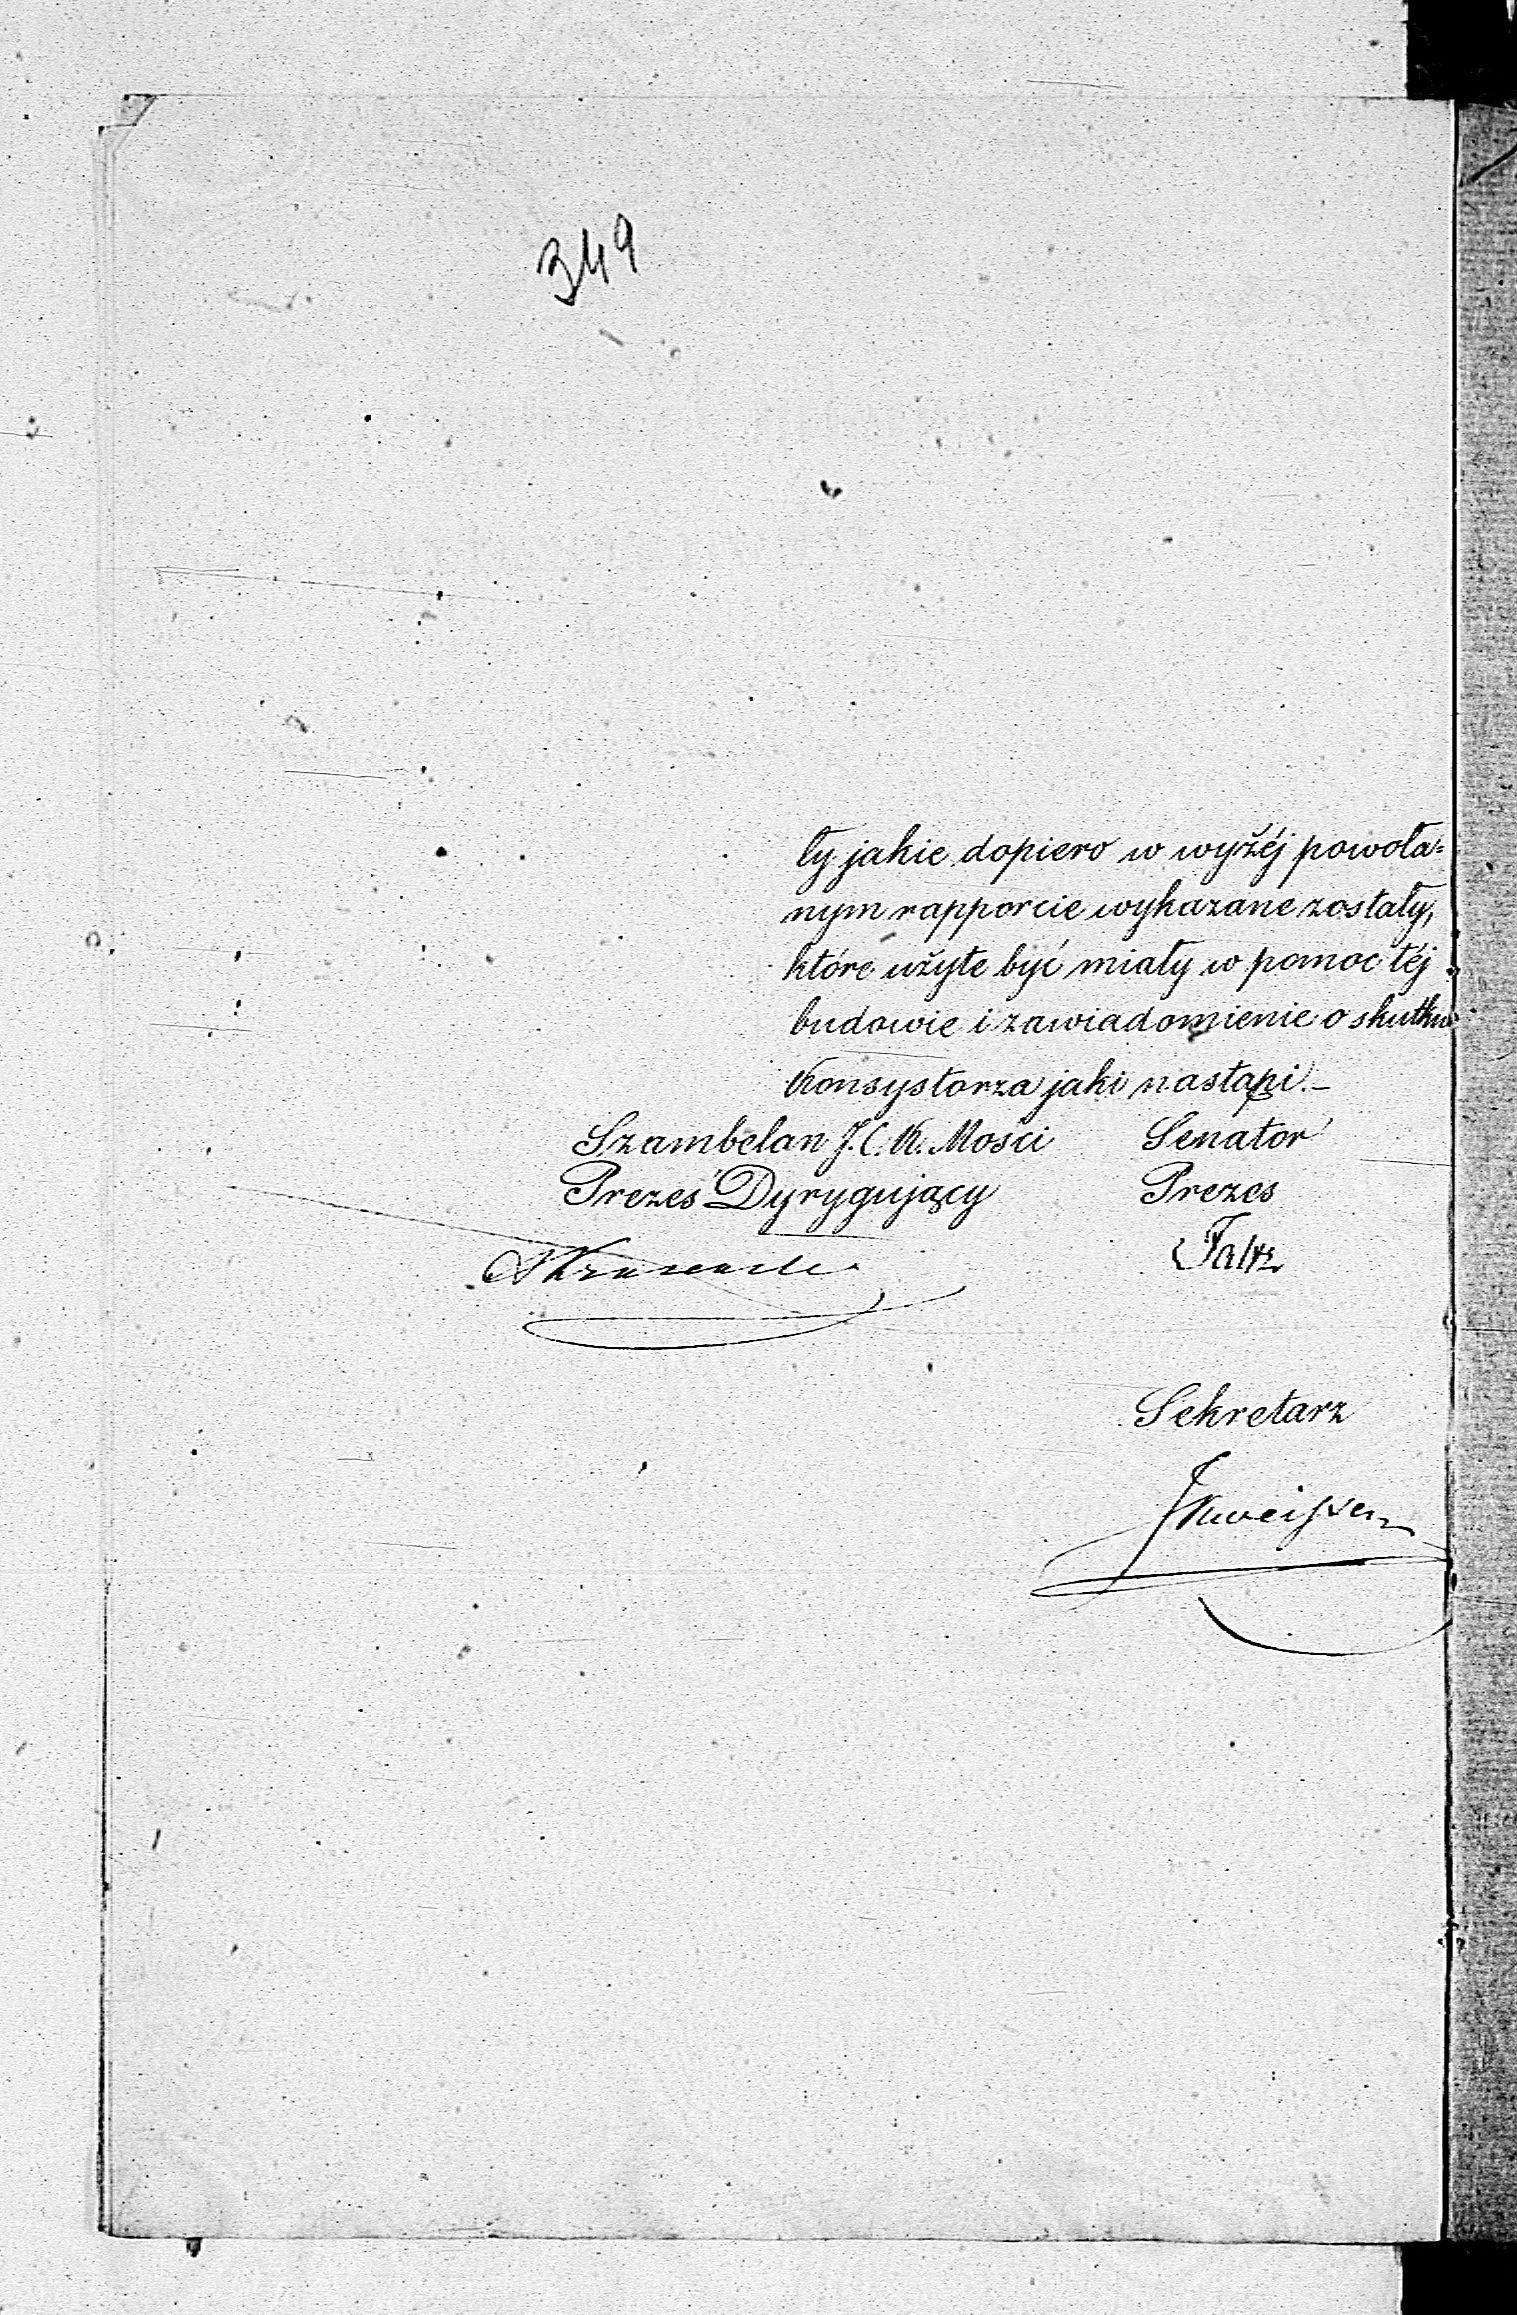 349
ły jakie dopiero w wyżéj powoła=
nym rapporcie wykazane zostały,
które użyte być miały w pomoc téj
budowie i zawiadomienie o skutku
Konsystorza jaki nastąpi.—
Szambelan J. C. K. Mości Senator
Prezes Dyrygujący Prezes
Faltz
Sekretarz